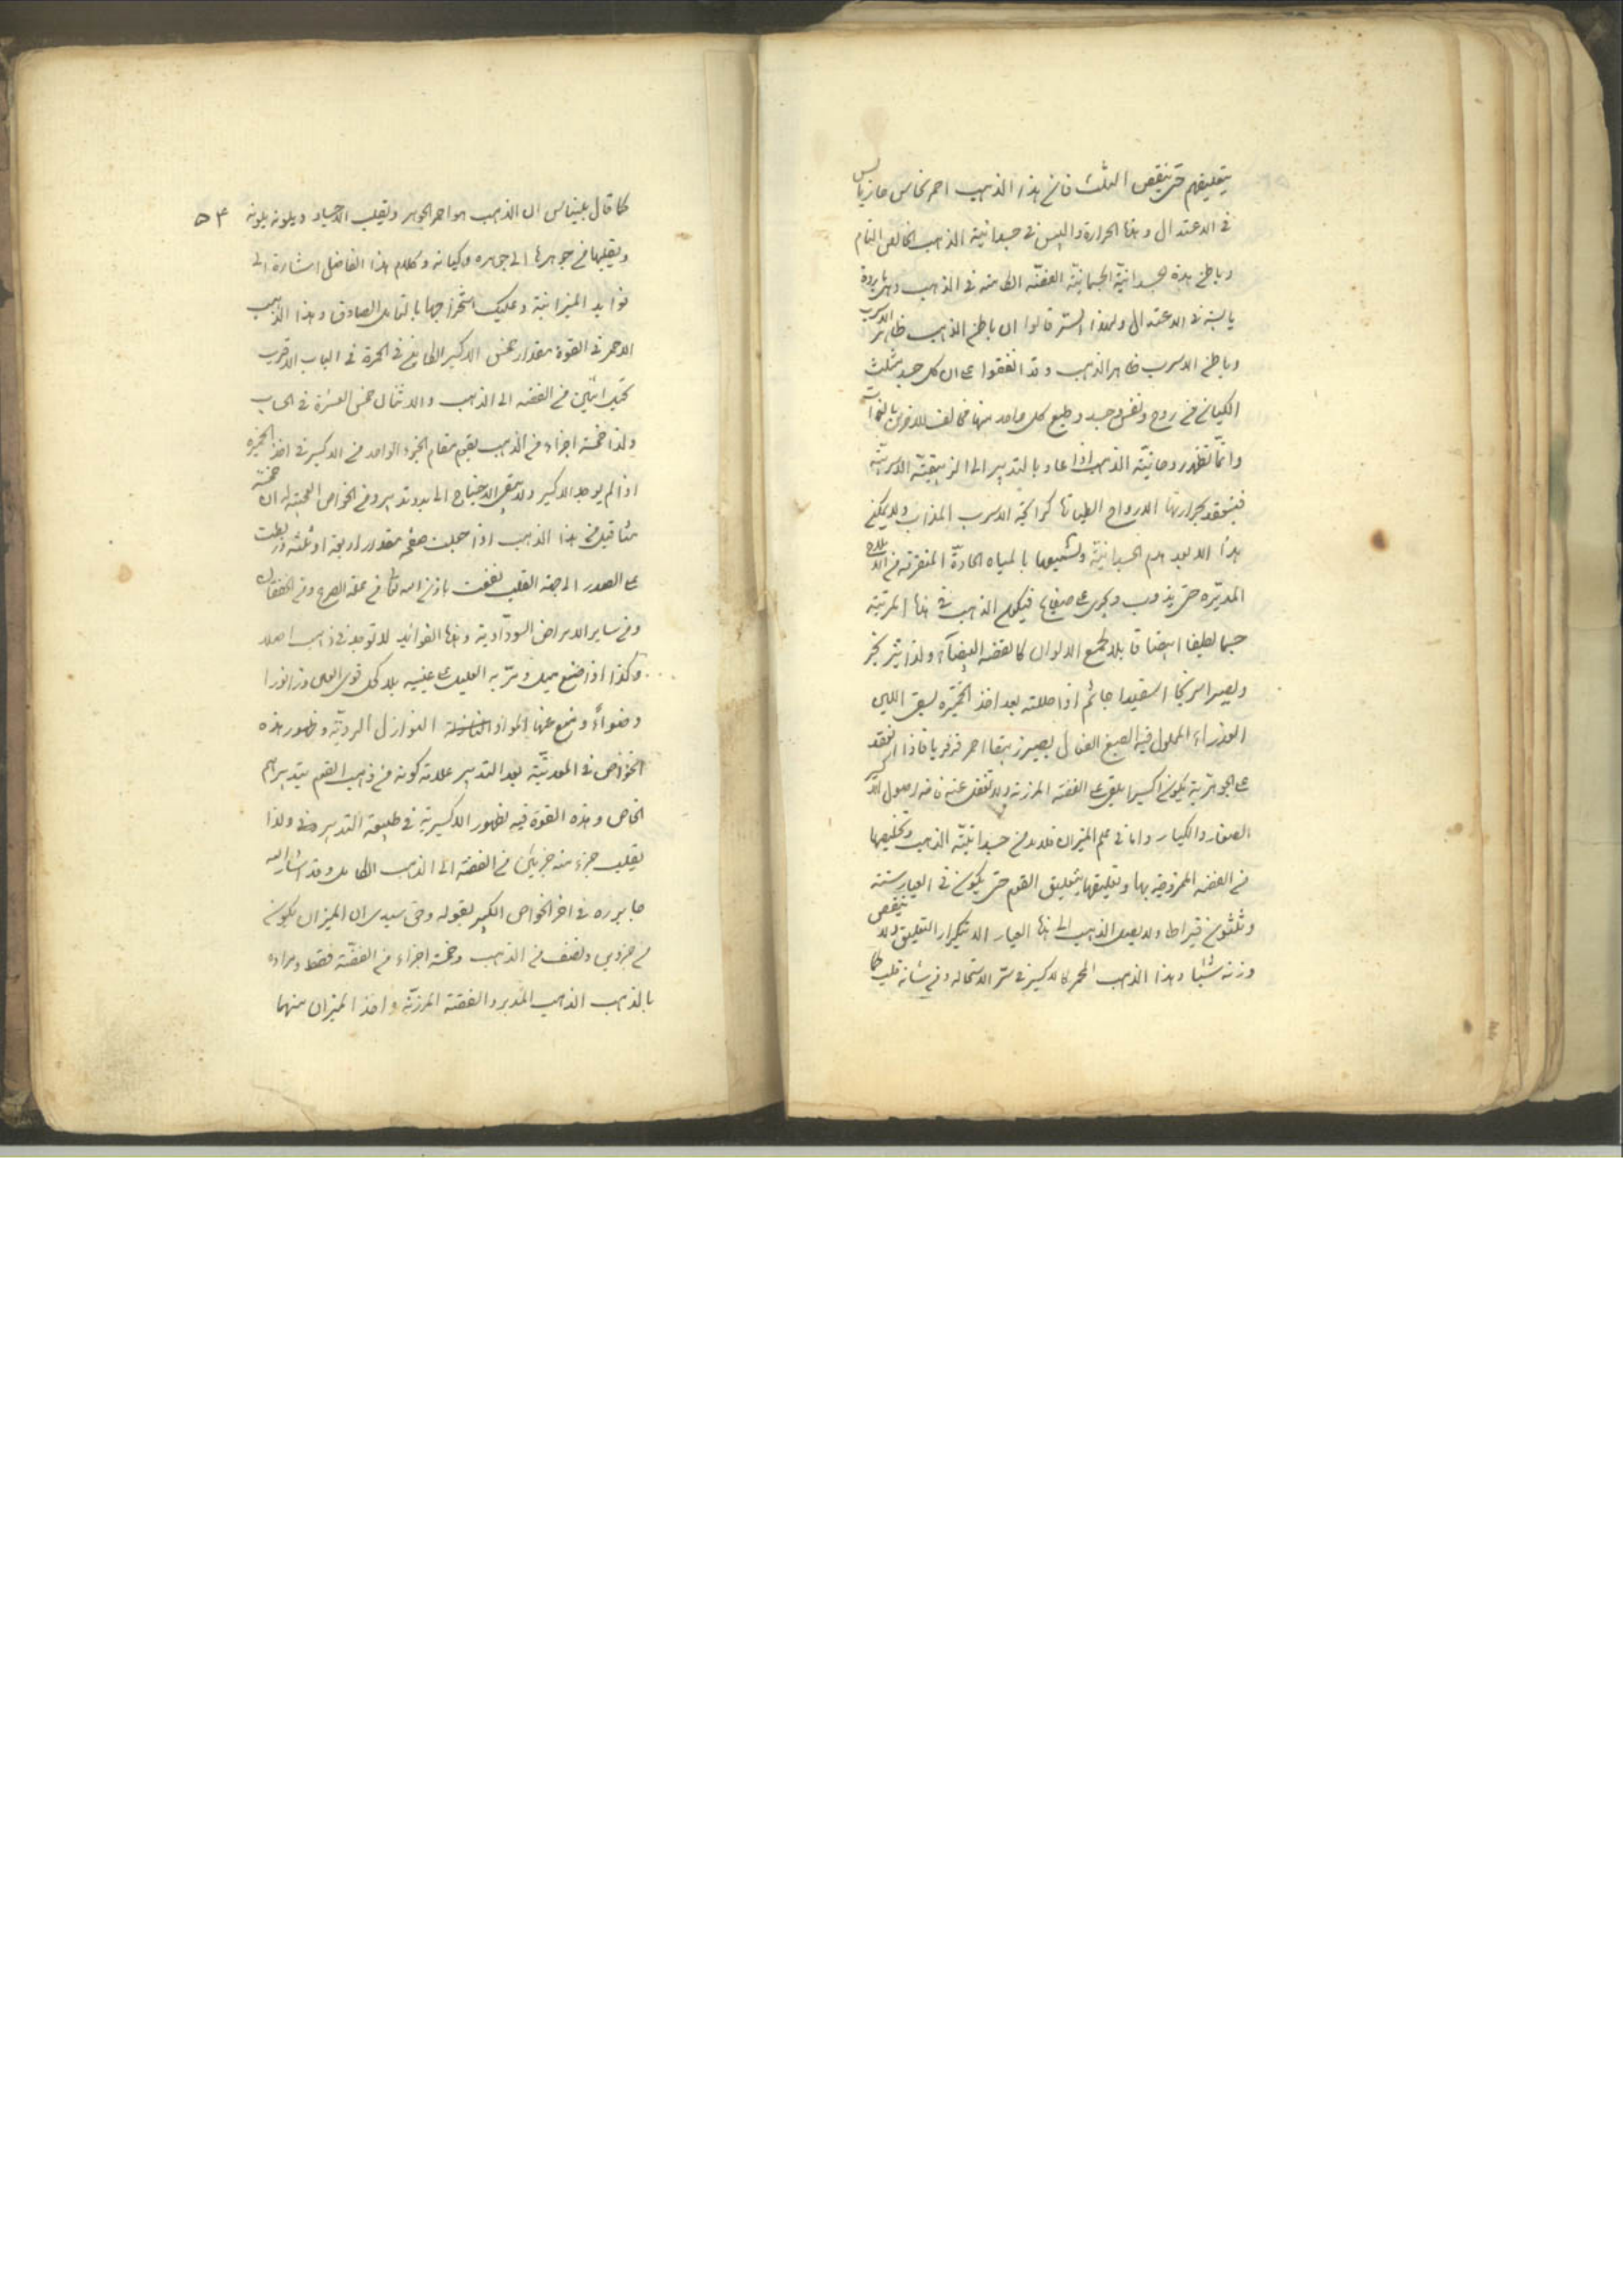 بتعليقهم حتى ينقص الثلث فان هذا الذهب احمر نحاس حار يابس
في الاعتدال وهذا الحرارة واليبس في جسدانية الذهب الخالص التام
وباطن هذه الجسدانية الجسمانية الفضة الكامنة في الذهب وهي باردة
يابسة في الاعتدال ولهذا السر قالوا ان باطن الذهب ظاهر الاسرب
وباطن الاسرب ظاهر الذهب وقد اتفقوا على ان كل جسد مثلث
الكيان من روح ونفس وجسد وطبع كل واحد منها مخالف للاخرين
وانما تظهر روحانية الذهب اذا عاد بالتدبير الى الزيبقية الاسربية
فينعقد بحرارتها الارواح كرائحة الاسرب المذاب ولا يمكن
هذا الا بعد هدم الجسدانية وتشميعها بالمياه الحادة من
المدبرة حتى يذوب ويجري على فيكون الذهب في هذا المرتبة
جسما لطيفا ابيضا قابلا لجميع الالوان كالفضة البيضاء ولذا
ويصير اسرنجا اذا حللته بعد اخذ الخميرة اللبن
العذراء المحلول فيه الصبغ الفعال يصير زيبقا احمر فرفريا فاذا انعقد
على الجوهرية يكون اكسيرا يلقى على الفضة المرزنة ولا تغفل عنه فانه اصول
الصغار والكبار واما في علم الميزان فلا بد من جسدانية الذهب وتخليصها
من الفضة الممزوجة بها وتعليقها بتعليق القوم حتى يكون في العيار ستة
وثلثون قيراطا ولا يصل الذهب الى هذا العيار الا بتكرار التعليق ولا ينقص
وزنه شيئا وهذا الذهب المحمر كالاكسير في سر الاستحالة ومن شانه قلب كما
كما قال بليناس ان الذهب هو احمر الجوهر ويقلب الاجساد ويلونه بلونه ۵۴
ويقلبها من جوهرها الى جوهره وكيانه وكلام هذا الفاضل اشارة الى
فوايد الميزانية وعليك استخراجها بالتامل الصادق وهذا الذهب
الاحمر في القوة بمقدار خمس الاكسير الكامل في الحمرة في الباب الاقرب
يحيل اثنين من الفضة الى الذهب والاثنان خمس العشرة في الحساب
ولذا خمسة اجزاء من الذهب يقوم مقام الجزء الواحد من الاكسير في اخذ الخميرة
اذا لم يوجد الاكسير ولا يبقى الاحتياج الى بدو تدبير ومن الخواص العجيبة له ان خمسة
مثاقيل من هذا الذهب اذا جعلت صفحه بمقدار اربعة او ثلثه وربطت
على الصدر الى جهة القلب نفعت باذن الله تعالى من علة الصرع ومن الخفقان
ومن ساير الامراض السوداوية وهذا الفوائد لا توجد في ذهب اصلا
وكذا اذا صنع ميل ومر به العليل على عينيه بلا كحل قوى العين وزاد نورا
وضواءً ومنع عنها المواد النوازل الردية وظهور هذه
الخواص في المعدنية بعد التدبير علامة كونه من ذهب القوم بتدبيرهم
الخاص وهذه القوة فيه لظهور الاكسيرية في طبيعة التدبير ولذا
يقلب جزء منه جزئين من الفضة الى الذهب الكامل وقد اشار اليه
جابر ره في اخر الخواص الكبير بقوله وحق سيدي ان الميزان يكون
من جزوين ونصف من الذهب وخمسة اجزاء من الفضة فقط ومراده
بالذهب الذهب المدبر والفضة المرزنة واخذ الميزان منهما